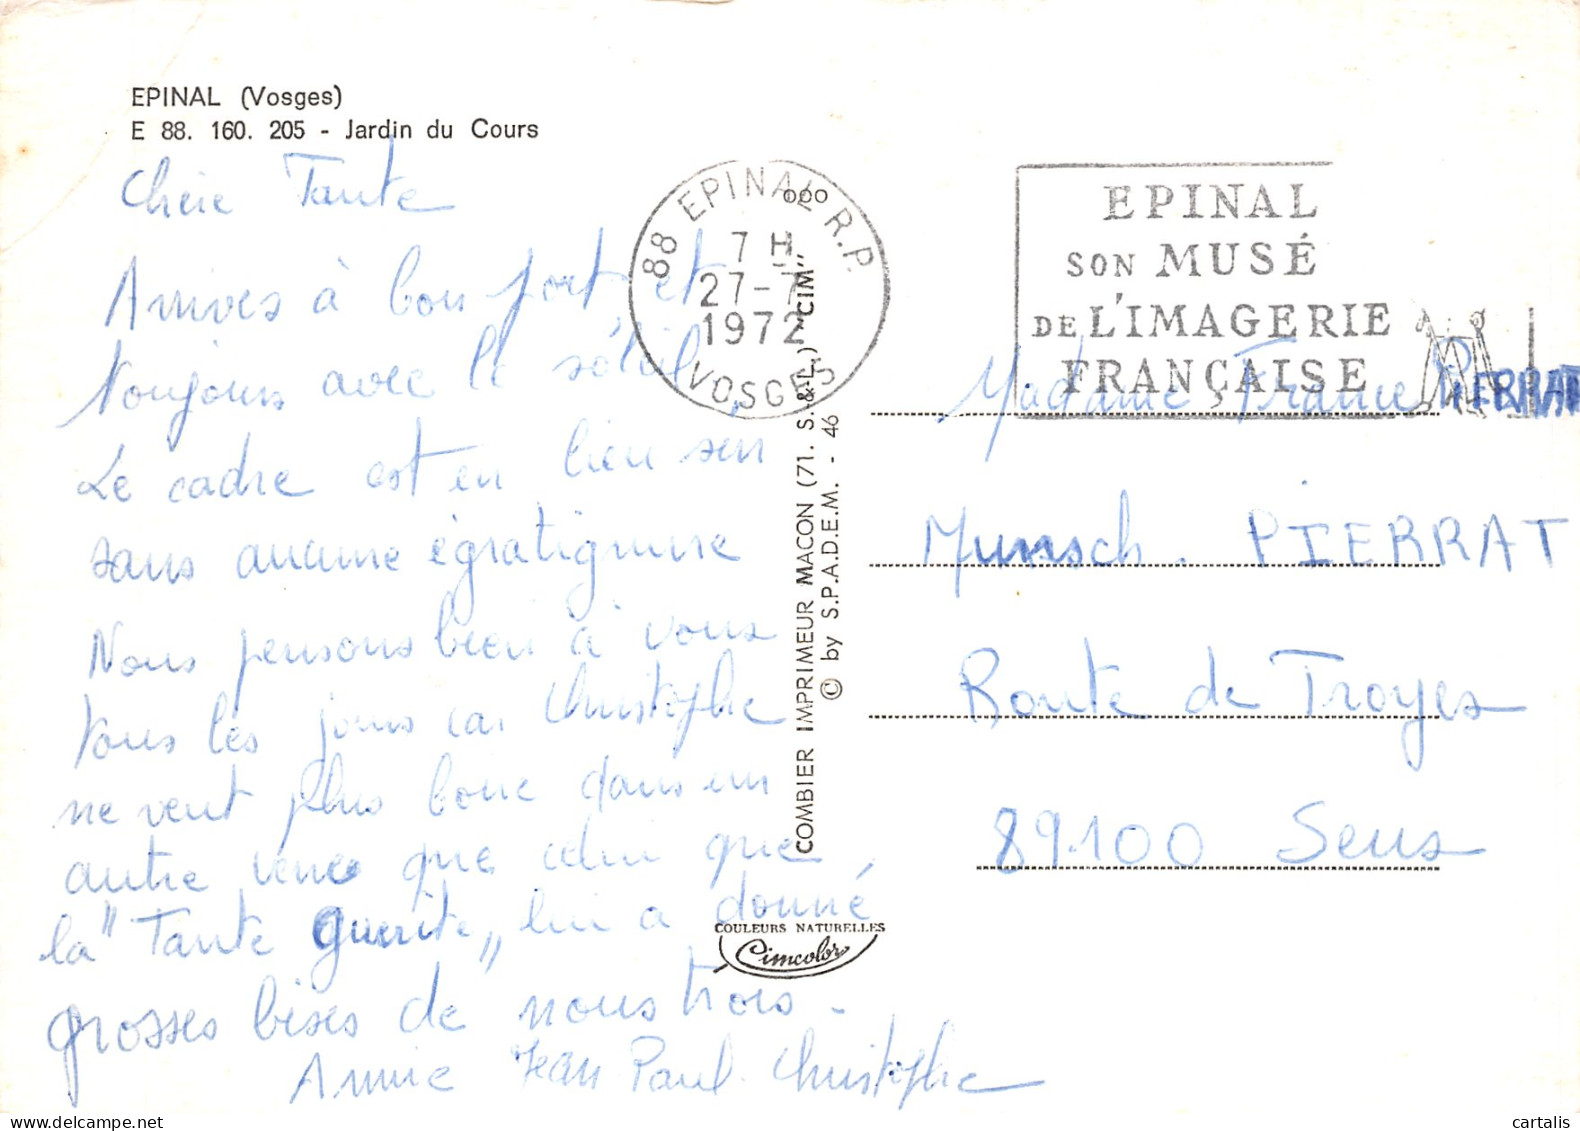 EPINAL (Vosges)
E 88. 160. 205 - Jardin du Cours
Chère Tante
Arrivés à bon port et
Toujours avec le soleil
Le cadre est en lieu seur
sans aucune égratignure
Nous pensons bien à vous
Tous les jours car Christophe
ne veut plus boire dans un
autre verre que celui que
la "Tante Guerite" lui a donné
grosses bises de nous trois -
Annie Jean Paul Christophe
88 EPINAL R.P.
7 H
27-7
1972
VOSGES
COMBIER IMPRIMEUR MACON (71. S.-&-L.) "CIM"
© by S.P.A.D.E.M. - 46
COULEURS NATURELLES
Cimcolor
EPINAL
SON MUSÉ
DE L'IMAGERIE
FRANÇAISE
Madame France PIERRAT
Munsch. PIERRAT
Route de Troyes
89.100 Sens
cartalis
delcampe.net